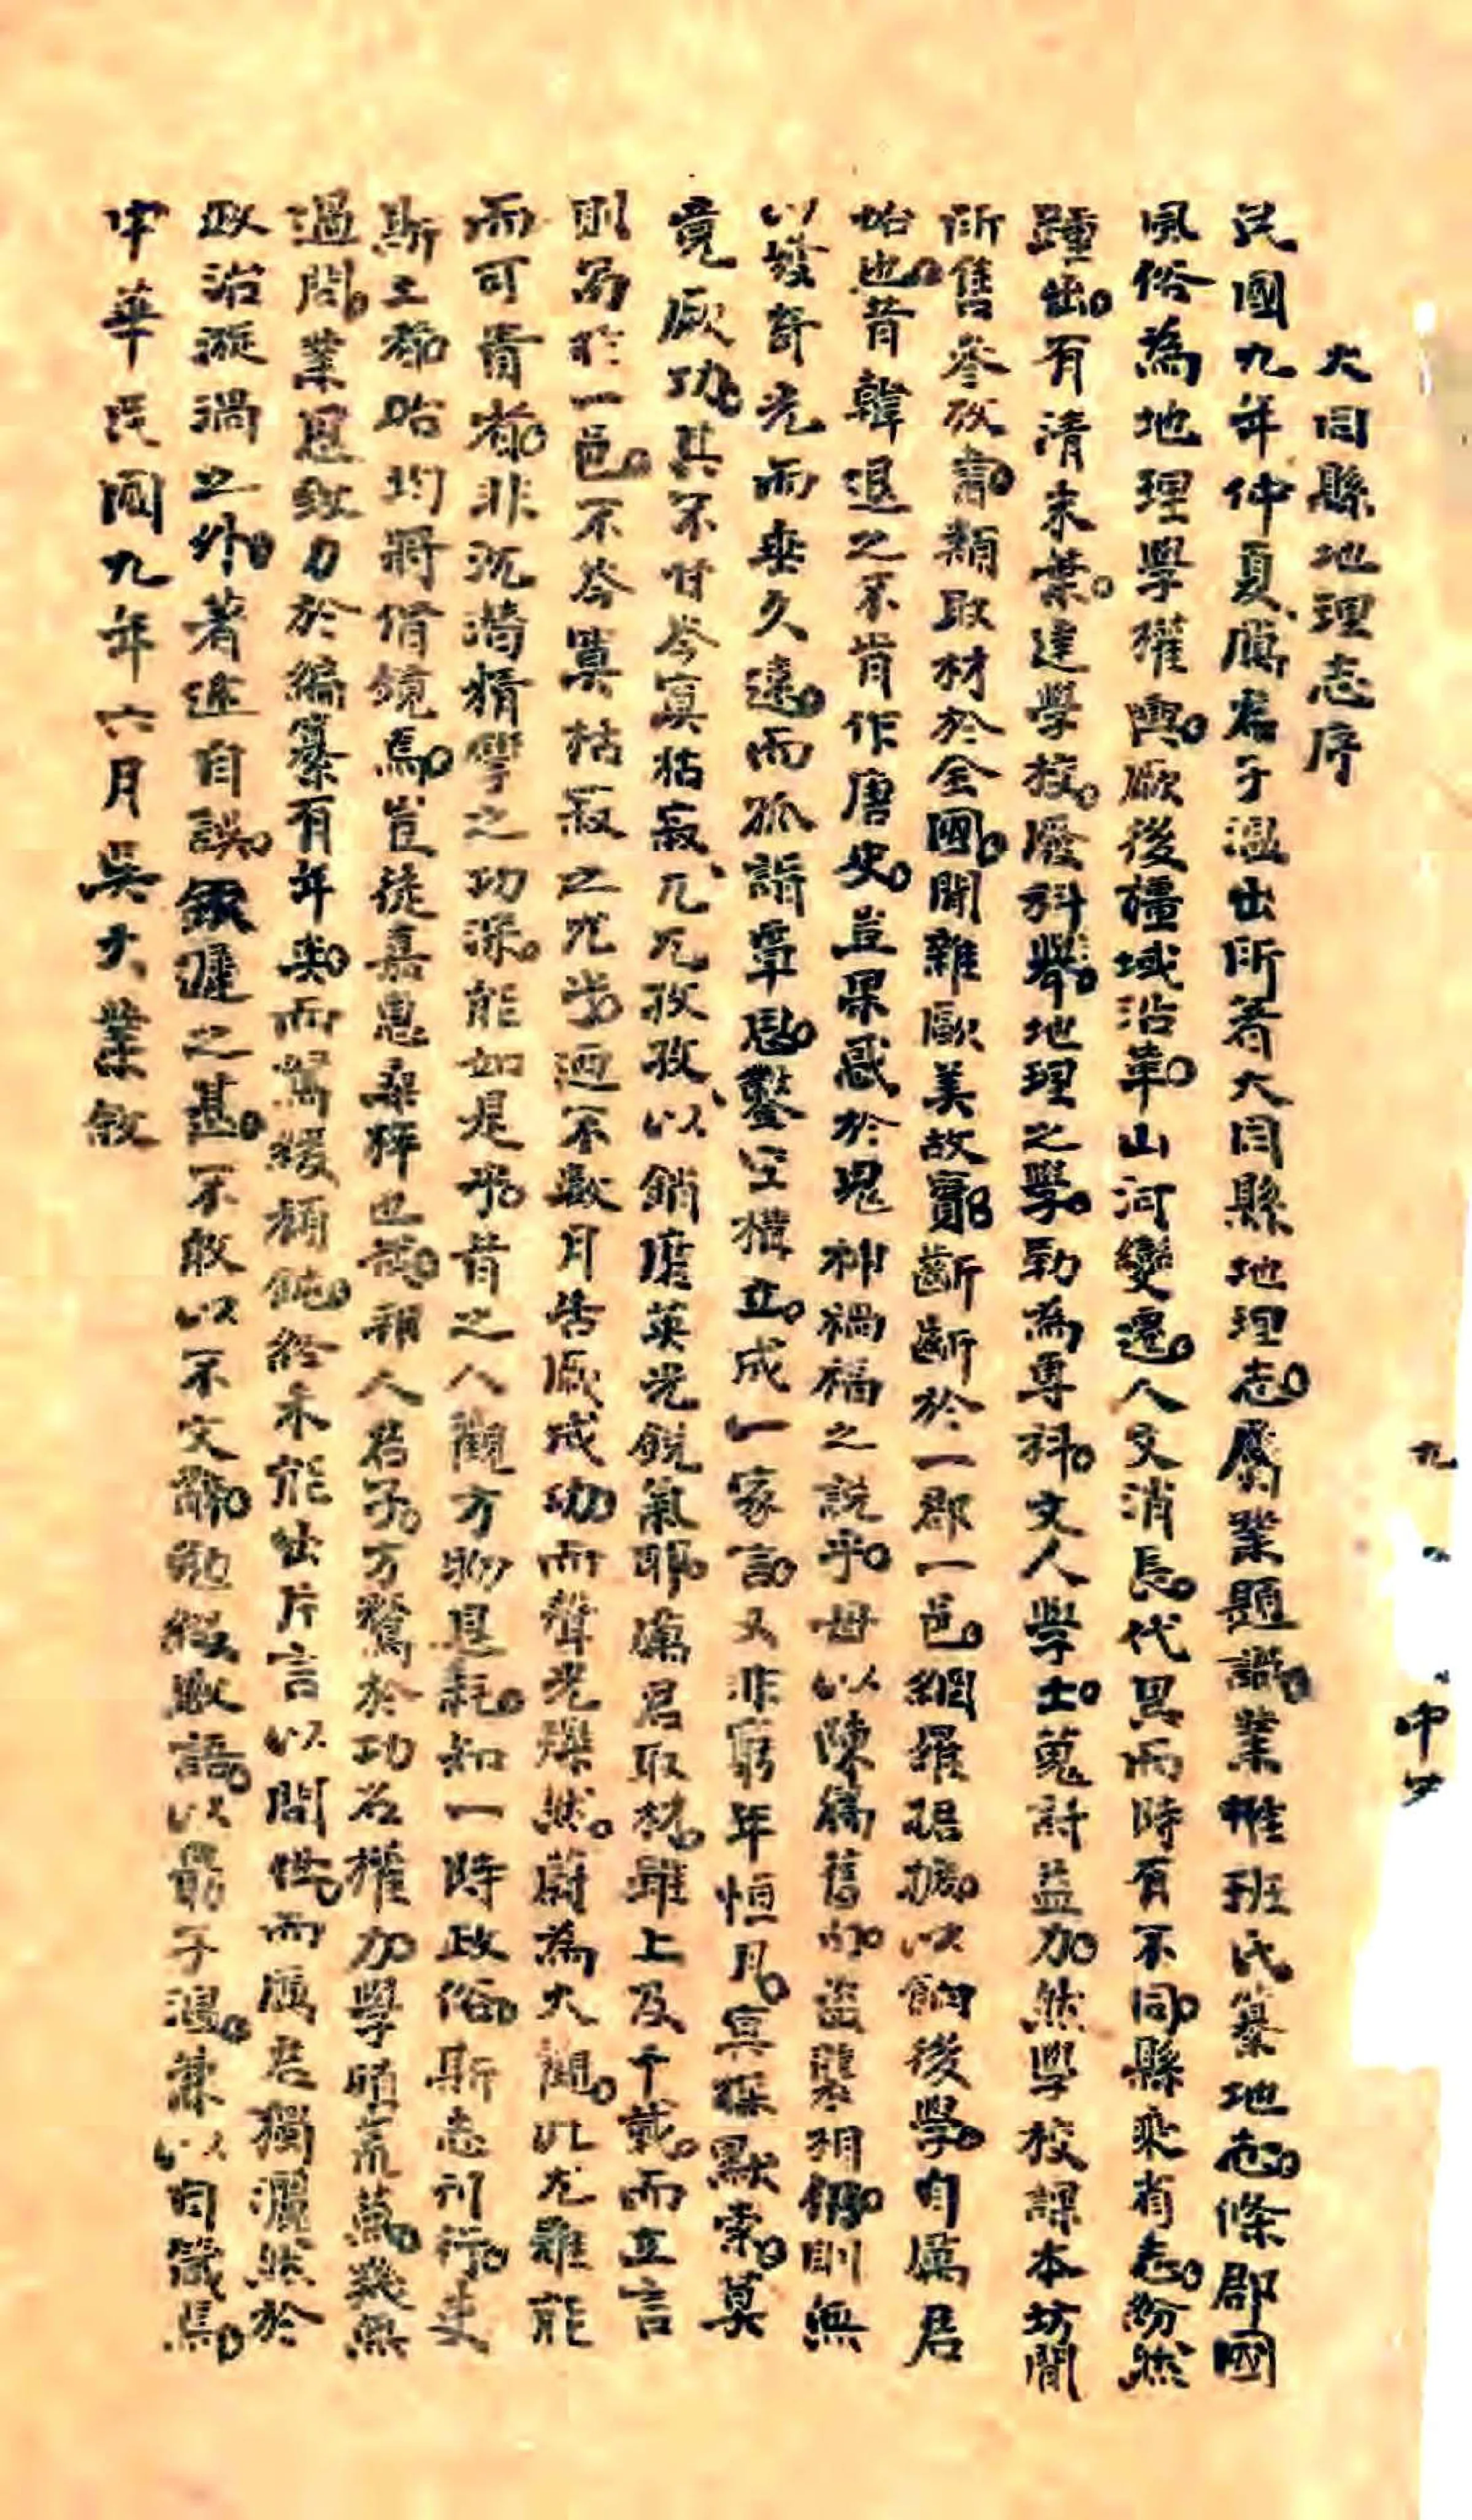 大同縣地理志序
民國九年仲夏厲君子溫出所著大同縣地理志屬業題識業惟班氏纂地志條郡國
風俗為地理學權輿厥後疆域沿革山河變遷人文消長代異而時有不同縣乘省志紛然
踵出有清末葉達學校廢科舉地理之學勒為專科文人學士蒐討益加然學校課本坊間
所售參攷書類取材於全國間雜歐美故實斷斷於一郡一邑網羅琚摭以餉後學自厲君
始也昔韓退之不肯作唐史豈果惑於鬼神禍福之說乎毋以陳篇舊冊盜襲相仍則無
以發奇光而垂久遠而孤詣覃思鑿空構立成一家言又非窮年恒月冥探默索莫
竟厥功其不甘岑寞枯寂兀兀孜孜以銷磨英光銳氣耶厲君取材雖上及千載而立言
則局於一邑不岑寞枯寂之咒告迺不數月告厥成功而聲光爍然蔚為大觀此尤難能
而可貴者非沉潛精學之功深能如是乎昔之人觀方物思乾知一時政俗斯志刊行吏
斯土者咍均將借鏡焉豈徒嘉惠桑梓也哉邦人君子方騖於功名權力學晒荒蕪幾無
過問業思致力於編纂有年矣而駑緩頑鈍終未能出片言以問世而厲君獨灑然於
政治漩渦之外著述自娛欽遲之甚不敢以不文辭勉綴數語以勗子溫兼以自箴焉
中華民國九年六月吳大業敘
九
中